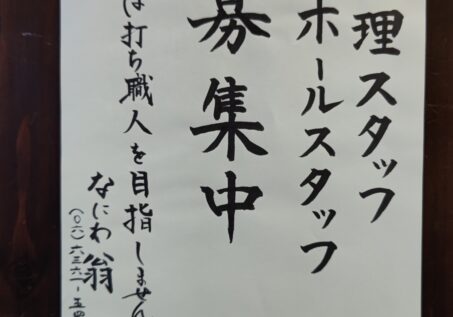 理スタッフ
ホールスタッフ
募集中
ば打ち職人を目指しません
なにわ翁
(〇六)六三六一-五四